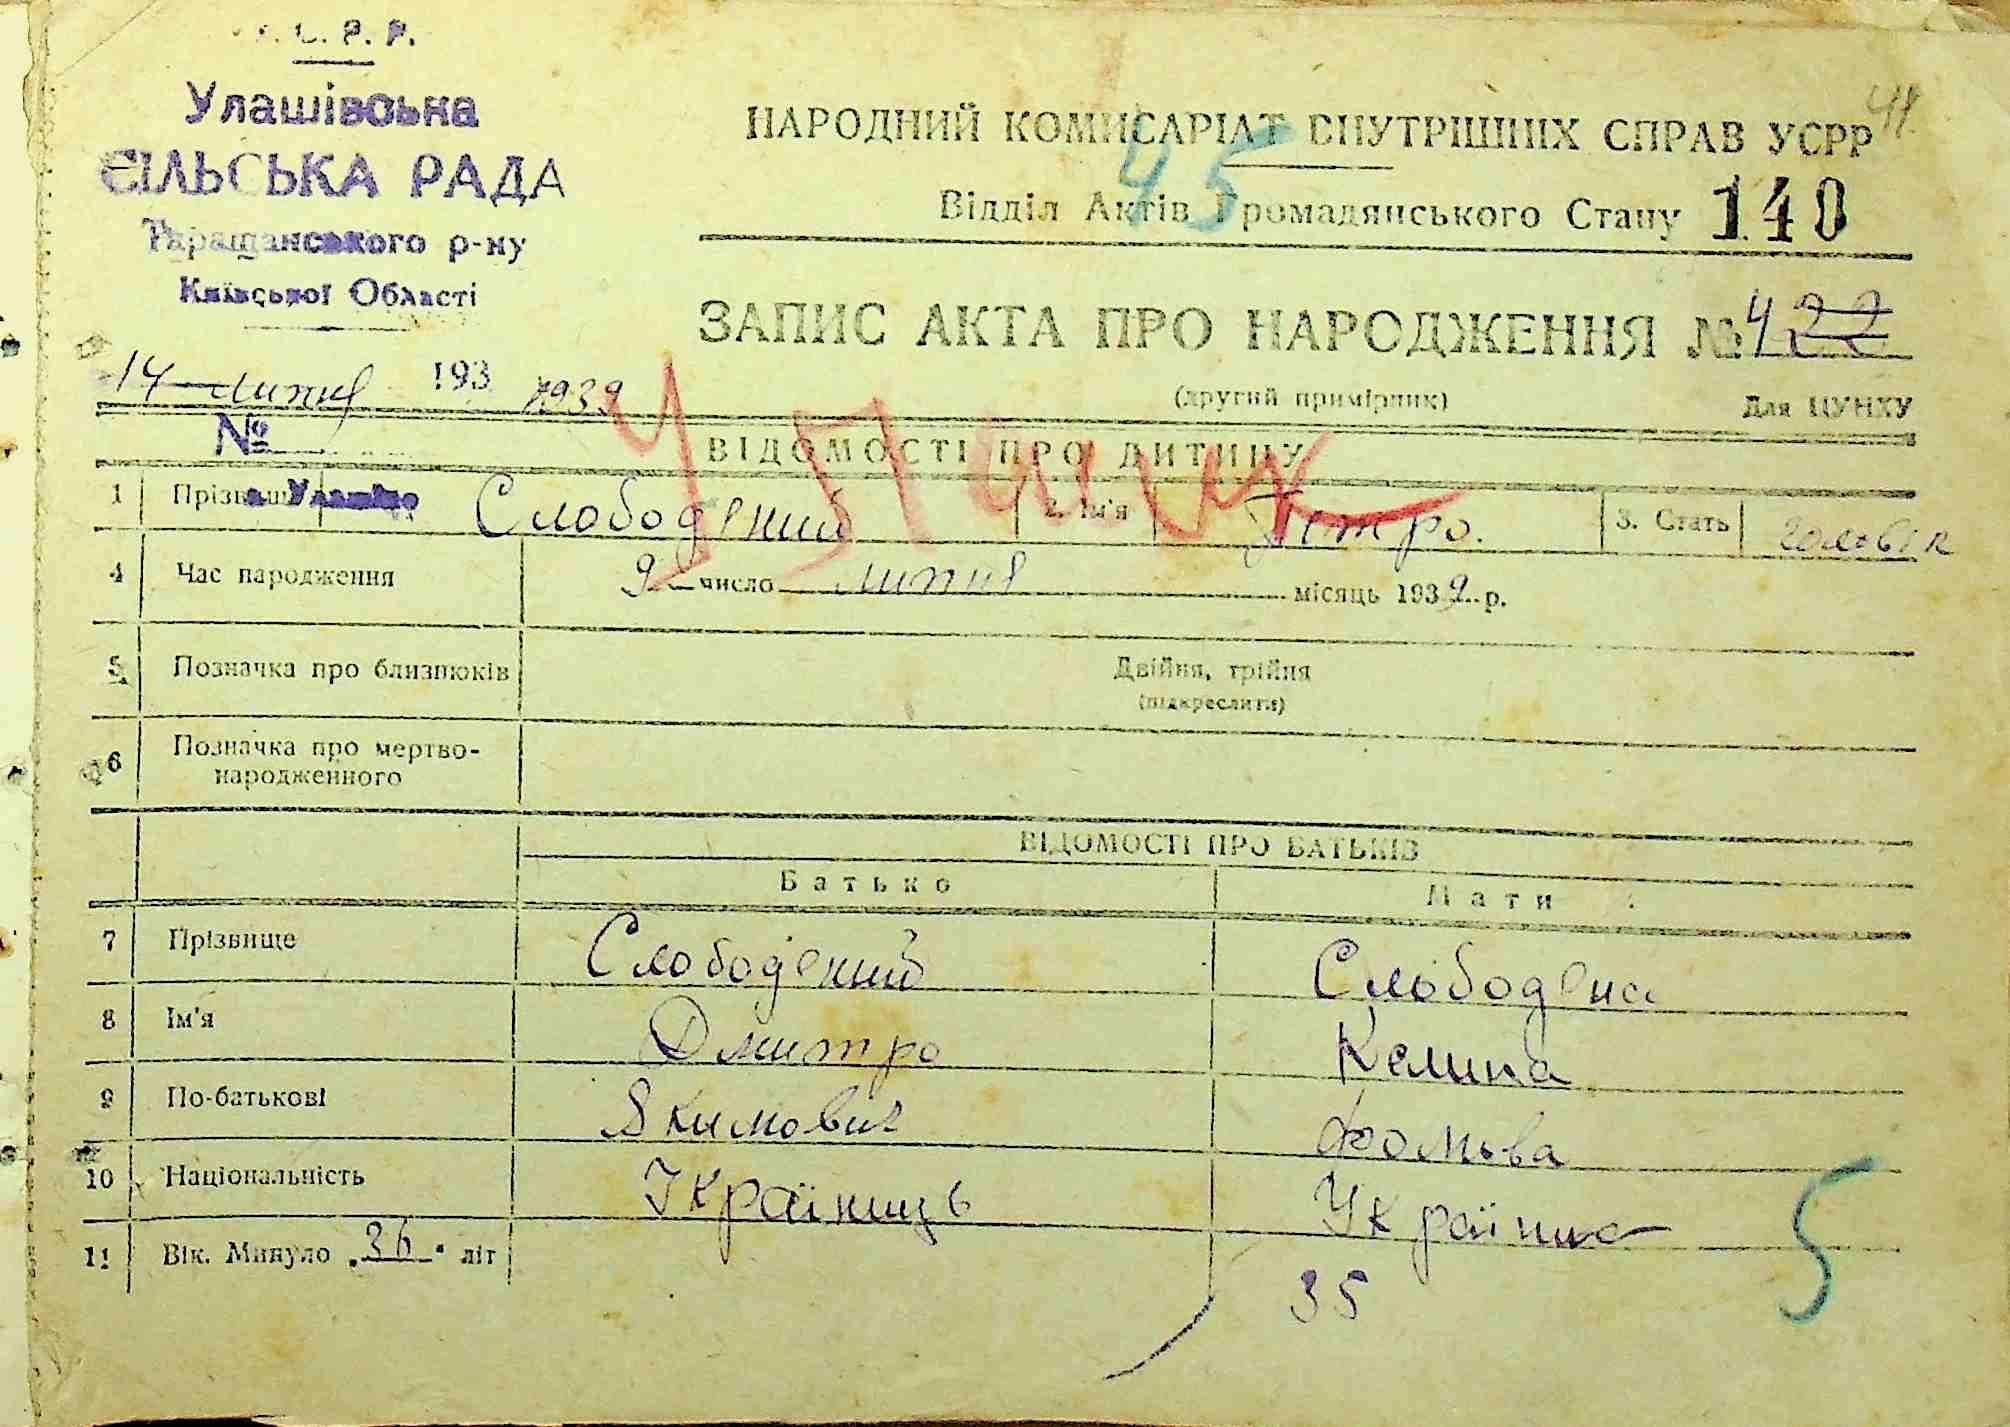 У.С.Р.Р.
Улашівська
СІЛЬСЬКА РАДА
Таращанського р-ну
Київської Області
№
с. Улашівка
НАРОДНИЙ КОМІСАРІАТ ВНУТРІШНІХ СПРАВ УСРР
41
45
Відділ Актів Громадянського Стану 140
ЗАПИС АКТА ПРО НАРОДЖЕННЯ № 4 22
14 липня 193 1939
(другий примірник) Для ЦУНХУ
ВІДОМОСТІ ПРО ДИТИНУ
1 Прізвище Слободений 2. Ім'я Петро. 3. Стать чоловік
4 Час народження 9 число липня місяць 1939 р.
5 Позначка про близнюків Двійня, трійня
(підкреслити)
6 Позначка про мертво-
народженного
ВІДОМОСТІ ПРО БАТЬКІВ
Батько Мати
7 Прізвище Слободений Слободена
8 Ім'я Дмитро Келина
9 По-батькові Якимович Фомьва
10 Національність Українець Українка
11 Вік. Минуло 36 літ 35
5